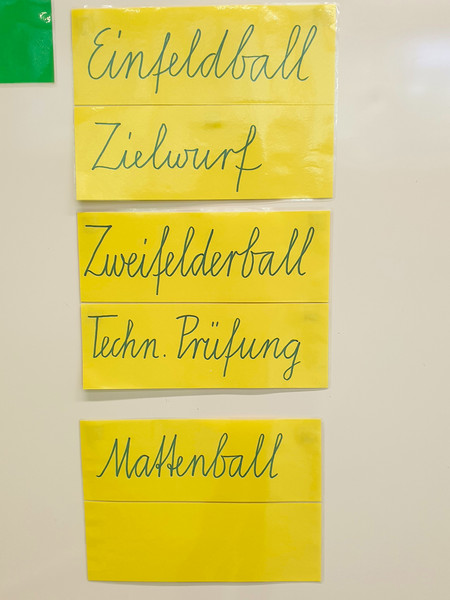 Einfeldball
Zielwurf
Zweifelderball
Techn. Prüfung
Mattenball